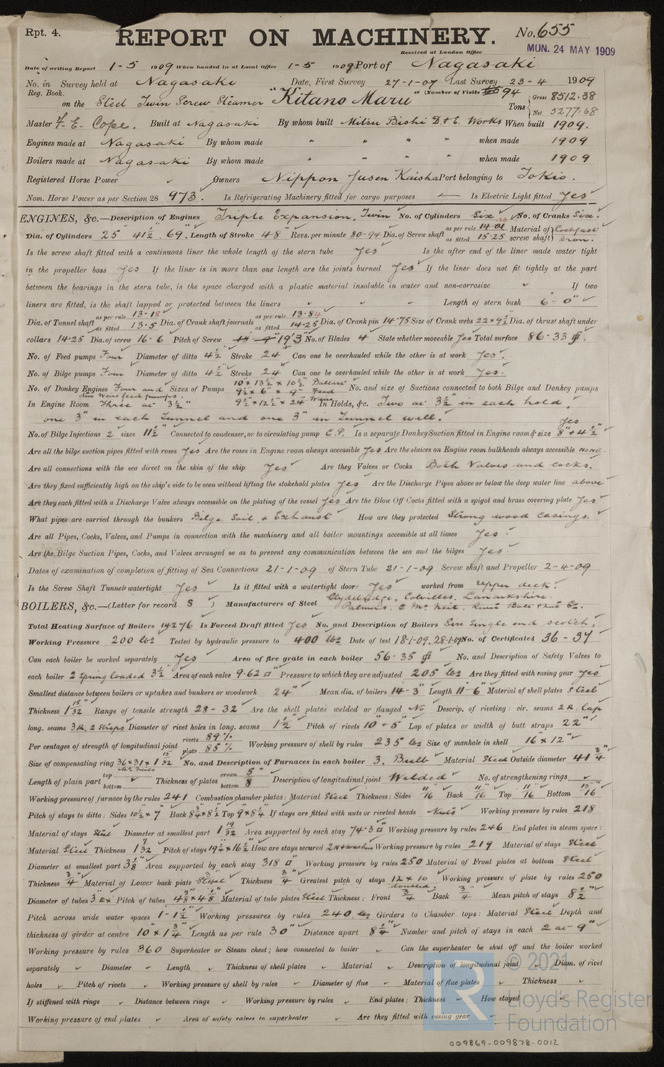 Rpt. 4. REPORT ON MACHINERY. No. 655
Received at London Office MUN. 24 MAY 1909
Date of writing Report 1-5 1909 When handed in at Local Office 1-5 1909 Port of Nagasaki
No. in Survey held at Nagasaki Date, First Survey 27-1-09 Last Survey 23-4 1909
Reg. Book. (Number of Visits 94
on the Steel Twin Screw Steamer "Kitano Maru" Tons Gross 8512.38 Net 5277.68
Master F. E. Cope. Built at Nagasaki By whom built Mitsu Bishi D & E. Works When built 1909.
Engines made at Nagasaki By whom made " " " " when made 1909
Boilers made at Nagasaki By whom made " " " " when made 1909
Registered Horse Power Owners Nippon Yusen Kaisha Port belonging to Tokio.
Nom. Horse Power as per Section 28 973. Is Refrigerating Machinery fitted for cargo purposes — Is Electric Light fitted Yes
ENGINES, &c.—Description of Engines Triple Expansion, Twin No. of Cylinders Six No. of Cranks Six.
Dia. of Cylinders 25" 41½" 69" Length of Stroke 48" Revs. per minute 80-94 Dia. of Screw shaft as per rule 14.01 as fitted 15.25 Material of screw shaft
Is the screw shaft fitted with a continuous liner the whole length of the stern tube Yes Is the after end of the liner made water tight
in the propeller boss Yes If the liner is in more than one length are the joints burned Yes If the liner does not fit tightly at the part
between the bearings in the stern tube, is the space charged with a plastic material insoluble in water and non-corrosive If two
liners are fitted, is the shaft lapped or protected between the liners Length of stern bush 6-0"
Dia. of Tunnel shaft as per rule 13.18 as fitted 13.5 Dia. of Crank shaft journals as per rule 13.84 as fitted 14.25 Dia. of Crank pin 14.75 Size of Crank webs 22×9½ Dia. of thrust shaft under
collars 14.25 Dia. of screw 16-6 Pitch of Screw 19'3" No. of Blades 4 State whether moveable Yes Total surface 86.35
No. of Feed pumps Four Diameter of ditto 4½ Stroke 24 Can one be overhauled while the other is at work Yes.
No. of Bilge pumps Four Diameter of ditto 4½ Stroke 24 Can one be overhauled while the other is at work Yes.
No. of Donkey Engines Four and Sizes of Pumps 10 × 13½ × 10½ No. and size of Suctions connected to both Bilge and Donkey pumps
In Engine Room Three at 3½" In Holds, &c. Two at 3½ in each hold,
one 3" in each Tunnel and one 3" in Tunnel well.
No. of Bilge Injections 2 sizes 11½ Connected to condenser, or to circulating pump C.P. Is a separate Donkey Suction fitted in Engine room & size Yes 8" & 4½"
Are all the bilge suction pipes fitted with roses Yes Are the roses in Engine room always accessible Yes Are the sluices on Engine room bulkheads always accessible none
Are all connections with the sea direct on the skin of the ship Yes Are they Valves or Cocks Both Valves and cocks.
Are they fixed sufficiently high on the ship's side to be seen without lifting the stokehold plates Yes Are the Discharge Pipes above or below the deep water line above
Are they each fitted with a Discharge Valve always accessible on the plating of the vessel Yes Are the Blow Off Cocks fitted with a spigot and brass covering plate Yes
What pipes are carried through the bunkers Bilge, Soil & Exhaust How are they protected Strong wood casings.
Are all Pipes, Cocks, Valves, and Pumps in connection with the machinery and all boiler mountings accessible at all times Yes.
Are the Bilge Suction Pipes, Cocks, and Valves arranged so as to prevent any communication between the sea and the bilges Yes.
Dates of examination of completion of fitting of Sea Connections 21-1-09 of Stern Tube 21-1-09 Screw shaft and Propeller 2-4-09
Is the Screw Shaft Tunnel watertight Yes Is it fitted with a watertight door Yes worked from upper deck.
BOILERS, &c.—(Letter for record S) Manufacturers of Steel Clydebridge, Colvilles, Lanarkshire,
Total Heating Surface of Boilers 14276 Is Forced Draft fitted Yes No. and Description of Boilers Six Single end scotch.
Working Pressure 200 lbs Tested by hydraulic pressure to 400 lbs Date of test 18-1-09, 28-1-09 No. of Certificates 36-37
Can each boiler be worked separately Yes Area of fire grate in each boiler 56.35 No. and Description of Safety Valves to
each boiler 2 Spring loaded 3½" Area of each valve 9.62 Pressure to which they are adjusted 205 lbs Are they fitted with easing gear Yes
Smallest distance between boilers or uptakes and bunkers or woodwork 24" Mean dia. of boilers 14-3" Length 11-6" Material of shell plates Steel
Thickness 1 15/32 Range of tensile strength 28-32 Are the shell plates welded or flanged No Descrip. of riveting: cir. seams 2 R. Lap
long. seams 3 R, 2 Straps Diameter of rivet holes in long. seams 1½ Pitch of rivets 10 + 5" Lap of plates or width of butt straps 22"
Per centages of strength of longitudinal joint rivets 89% plate 85% Working pressure of shell by rules 235 lbs Size of manhole in shell 16×12"
Size of compensating ring 36×31×1 15/32 No. and Description of Furnaces in each boiler 3, Bulb Material Steel Outside diameter 41¾"
Length of plain part top bottom Thickness of plates crown bottom 5/8 Description of longitudinal joint Welded No. of strengthening rings
Working pressure of furnace by the rules 241 Combustion chamber plates: Material Steel Thickness: Sides 11/16 Back 11/16 Top 11/16 Bottom
Pitch of stays to ditto: Sides 10½×7 Back 8¾×8½ Top 9×8¾ If stays are fitted with nuts or riveted heads Nuts Working pressure by rules 218
Material of stays Steel Diameter at smallest part 1 19/32 Area supported by each stay 74.3 Working pressure by rules 246 End plates in steam space:
Material Steel Thickness 1 7/32 Pitch of stays 19½×16½ How are stays secured Working pressure by rules 219 Material of stays Steel
Diameter at smallest part 3⅛ Area supported by each stay 318 Working pressure by rules 250 Material of Front plates at bottom Steel
Thickness ¾ Material of Lower back plate Steel Thickness ¾ Greatest pitch of stays 12 × 10 Working pressure of plate by rules 250
Diameter of tubes Pitch of tubes Material of tube plates Steel Thickness: Front ¾ Back ¾ Mean pitch of stays 8½"
Pitch across wide water spaces 1-1½" Working pressures by rules 240 lbs Girders to Chamber tops: Material Steel Depth and
thickness of girder at centre 10 × 1¾ Length as per rule 30" Distance apart 8¾ Number and pitch of stays in each 2 at 9"
Working pressure by rules 360 Superheater or Steam chest; how connected to boiler Can the superheater be shut off and the boiler worked
separately Diameter Length Thickness of shell plates Material Description of longitudinal joint Diam. of rivet
holes Pitch of rivets Working pressure of shell by rules Diameter of flue Material of flue plates Thickness
If stiffened with rings Distance between rings Working pressure by rules End plates: Thickness How stayed
Working pressure of end plates Area of safety valves to superheater Are they fitted with easing gear
© 2021
LR
Lloyd's Register
Foundation
009869-009878-0012